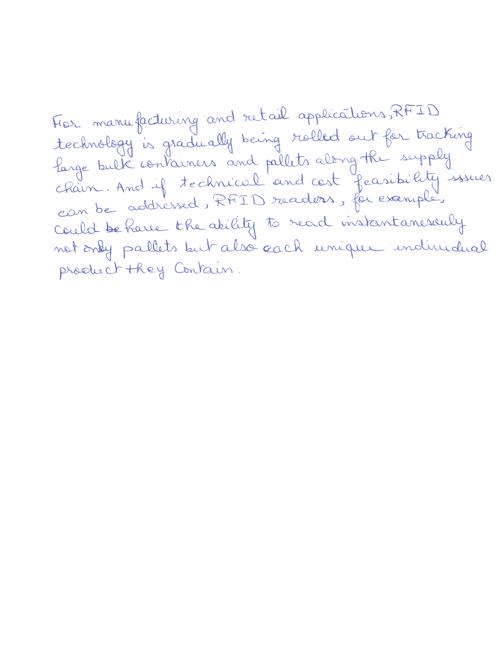 For manufacturing and retail applications, RFID
technology is gradually being rolled out for tracking
large bulk containers and pallets along the supply
chain. And if technical and cost feasibility issues
can be addressed, RFID readers, for example,
could have the ability to read instantanesouly
not only pallets but also each unique individual
product they Contain.